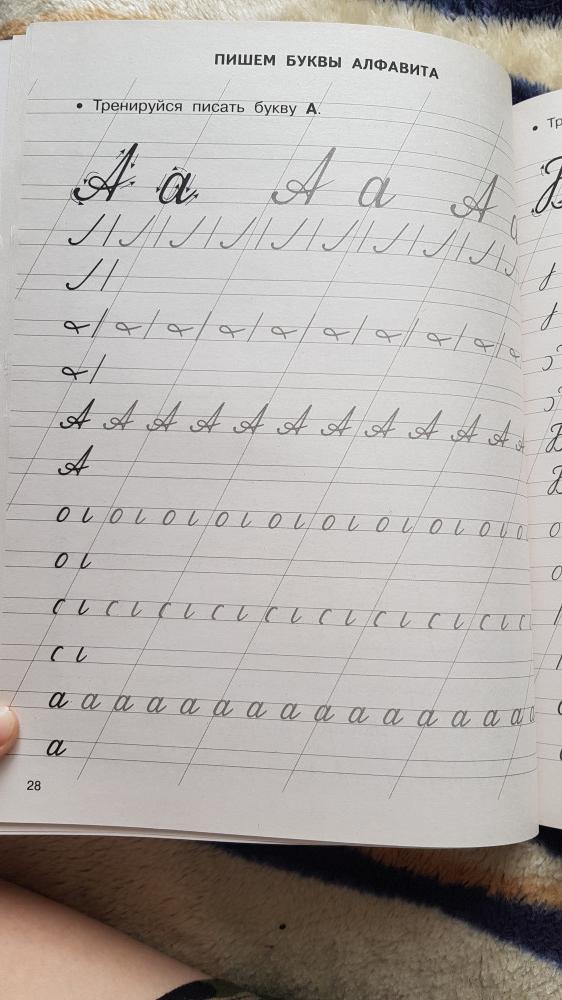 ПИШЕМ БУКВЫ АЛФАВИТА
• Тренируйся писать букву А.
А а А а А
А А А А А А А А А А
А
о ι о ι о ι о ι о ι о ι о ι о ι о ι
о ι
с ι с ι с ι с ι с ι с ι с ι с ι с ι
с ι
а а а а а а а а а а а а а а а
а
28
• Тр